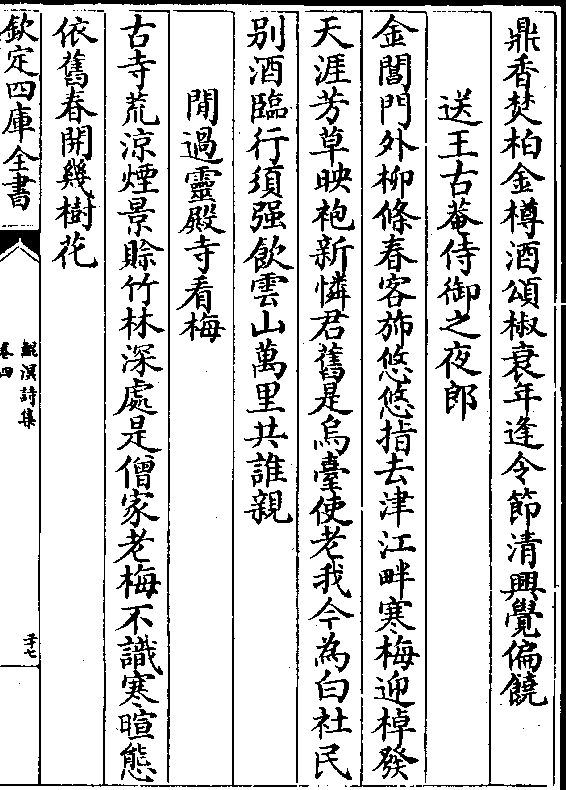 鼎香焚柏金樽酒頌椒衰年逢令節清興覺偏饒
送王古菴侍御之夜郎
金閶門外柳條春客斾悠悠指去津江畔寒梅迎棹發
天涯芳草映袍新憐君舊是烏臺使老我今為白社民
别酒臨行須强飲雲山萬里共誰親
閒過靈殿寺看梅
古寺荒凉煙景賖竹林深處是僧家老梅不識寒暄態
依舊春開幾樹花
欽定四庫全書
鯤溟詩集
卷四
三十七